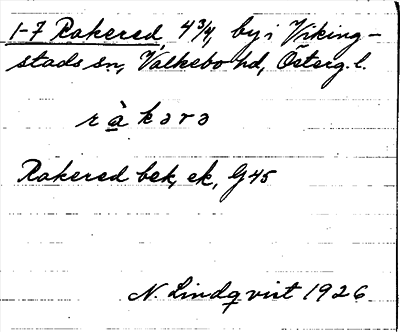 1-7 Rakered, 4 3/4, by i Viking-
stads sn, Valkebo hd, Österg. l.
r à k ə r ə
Rakered bek, ek, G 45
N. Lindqvist 1926